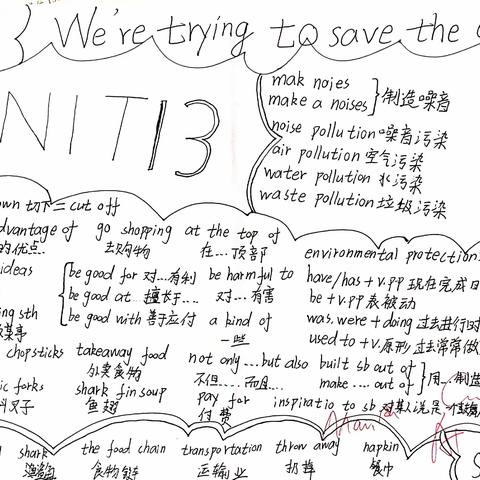 We're trying to save the
NIT 13
mak noies
make a noises } 制造噪音
noise pollution 噪音污染
air pollution 空气污染
water pollution 水污染
waste pollution 垃圾污染
own 切下 = cut off
dvantage of go shopping at the top of
的优点... 去购物 在...顶部 environmental protection
ideas be good for 对...有利 be harmful to have/has + v.pp 现在完成
be good at 擅长于... 对...有害 be + v.pp 表被动
ing sth be good with 善于应付 a kind of was, were + doing 过去进行时
某事 一些 used to + v.原形 过去常常做
chopsticks takeaway food not only...but also built sb out of
外卖食物 不但...而且... make .... out of } 用...制造
ic forks shark fin soup pay for inspiratio to sb 对某人说是
叉子 鱼翅 付费
shark the food chain transportation throw away napkin
鲨鱼 食物链 运输业 扔掉 餐巾